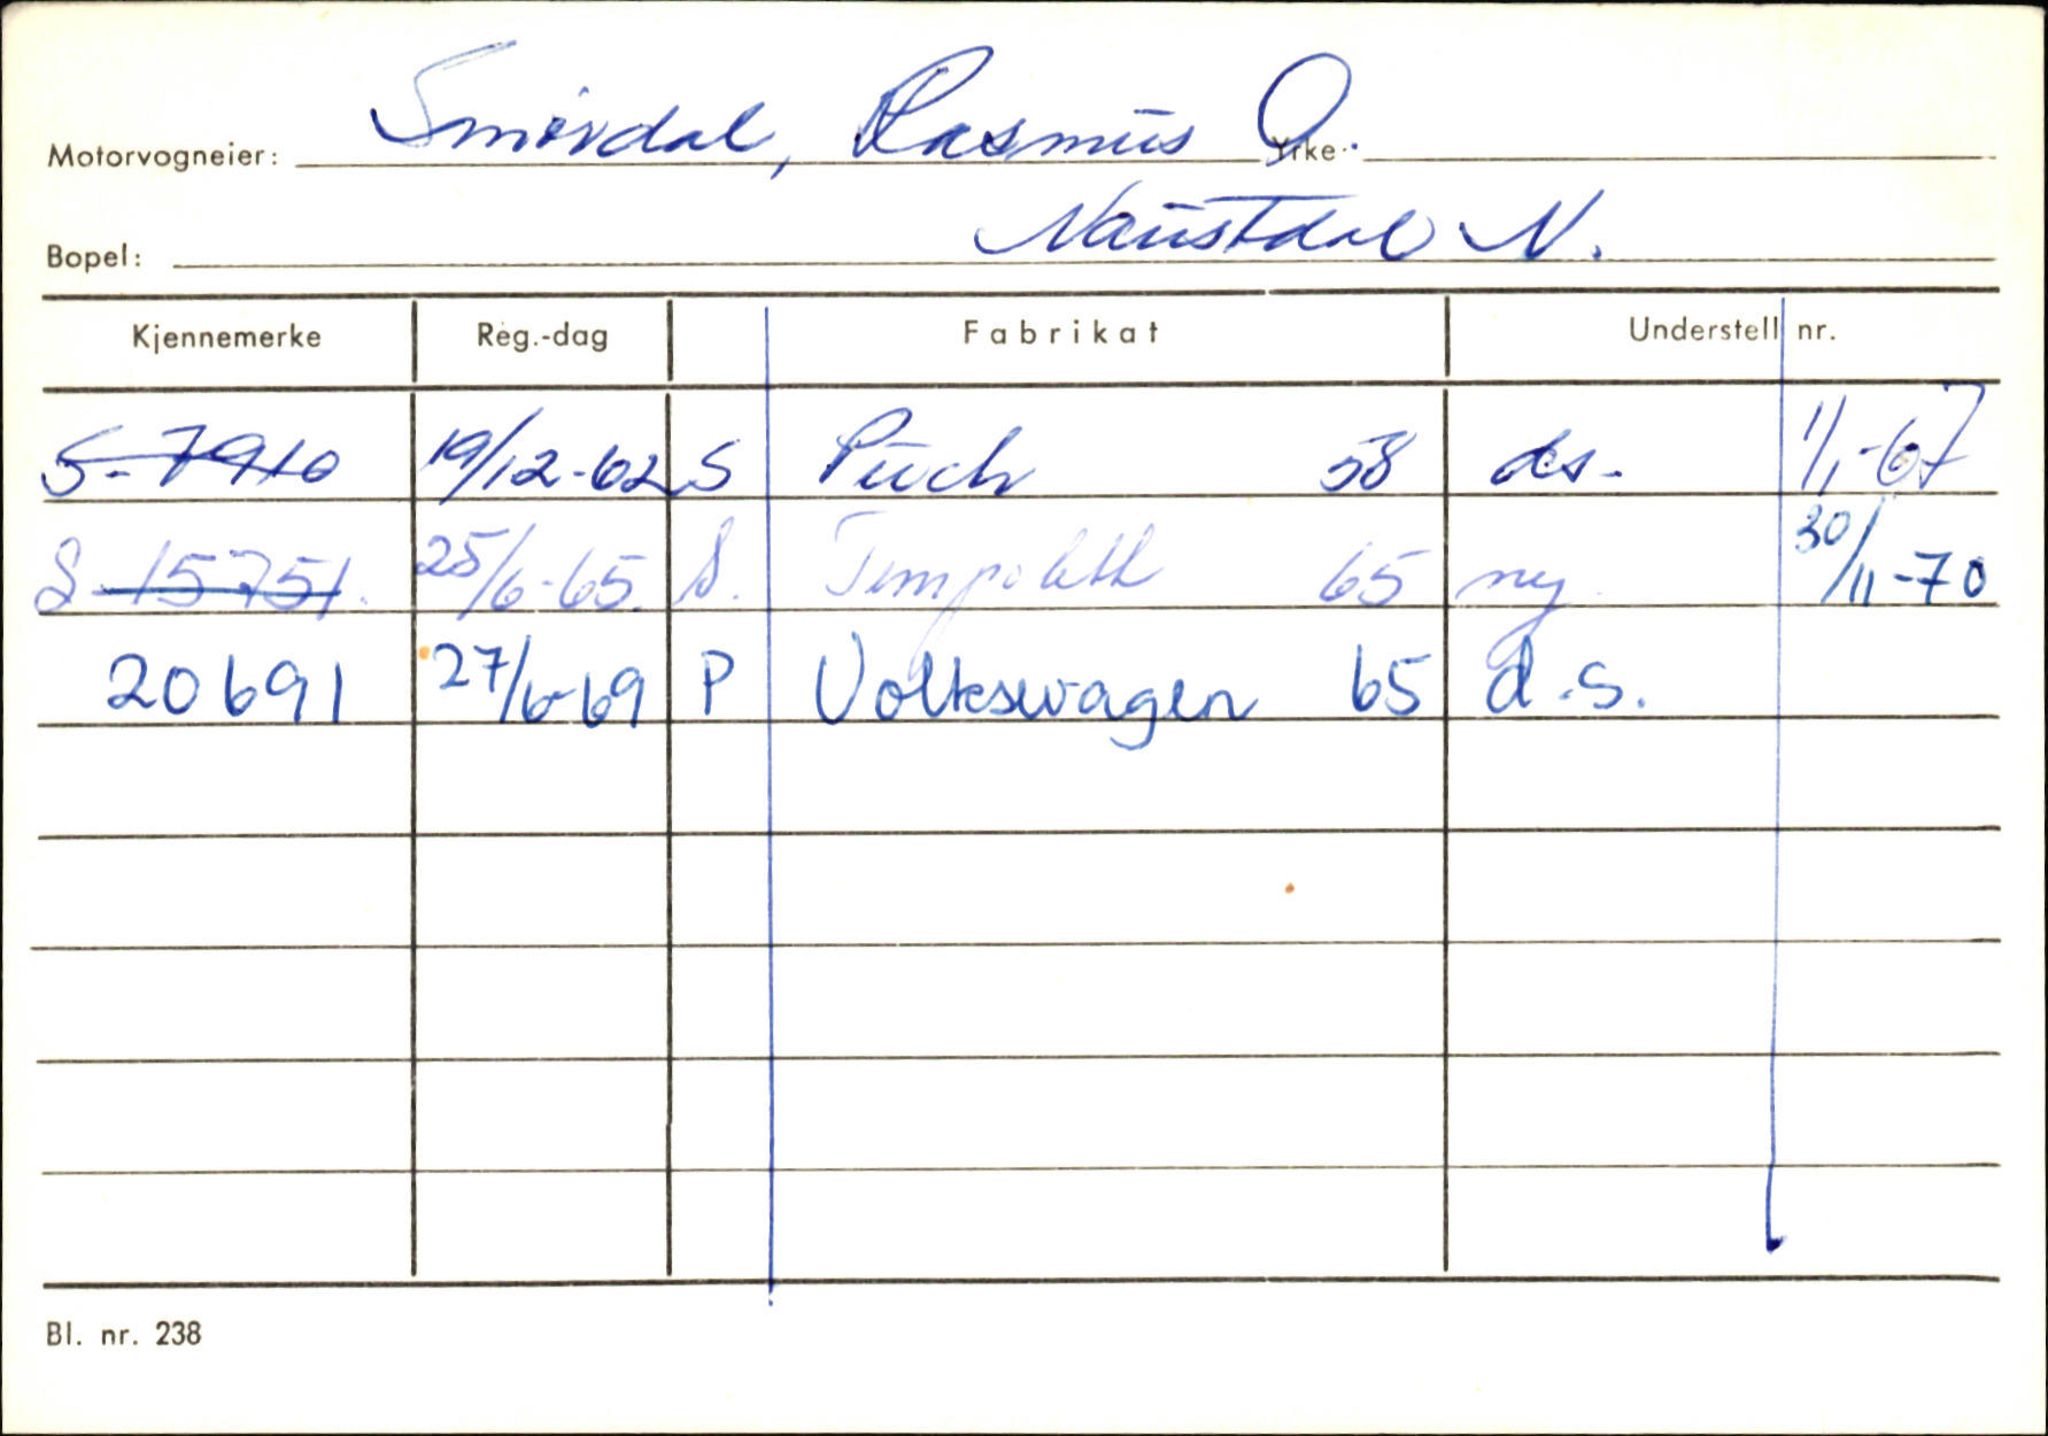 Motorvogneier: Smørdal, Rasmus O. Yrke:
Bopel: Naustdal N.
Kjennemerke Reg.-dag Fabrikat Understell nr.
S-7910 19/12-62 S Puch 58 ds. 1/1-67
S-15751. 25/6-65. S. Tempo lett 65 ny 30/11-70
20691 27/6-69 P Volkswagen 65 d.s.
Bl. nr. 238